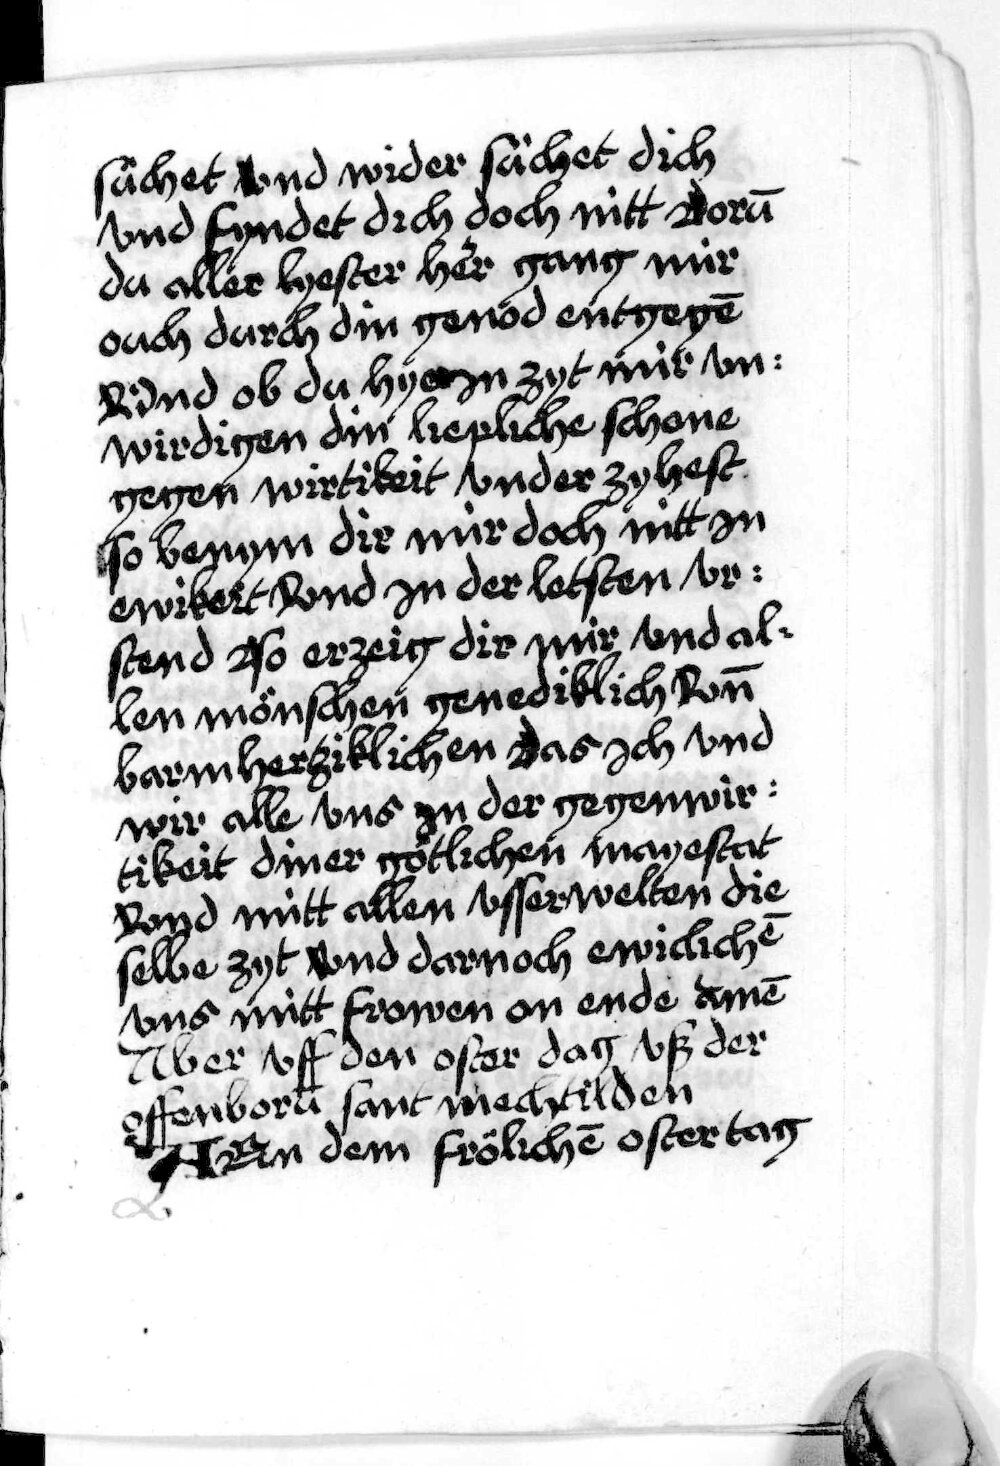 sůchet vnd wider sůchet dich
vnd fyndet dich doch nitt Dorū
du aller lyester her gang mir
ouch durch din genod entgegē
Vnd ob du hye in zyt mir vn:
wirdigen din liepliche schone
gegen wirtikeit vnder zyhest
so benym dir mir doch nitt in
ewikeit Vnd in der letsten vr:
stend So erzeig dir mir vnd al:
len mönschen genediklich Vnn̄
barmhertziklichen Das ich vnd
wir alle vns in der gegenwir:
tikeit diner götlichen mayestat
Vnd mitt allen vsserwelten die
selbe zyt Vnd darnoch ewiclichē
vns mitt frowen on ende Amē
Aber vff den oster dag vß der
offenborū sant mechtilden
AN dem frölichē oster tag